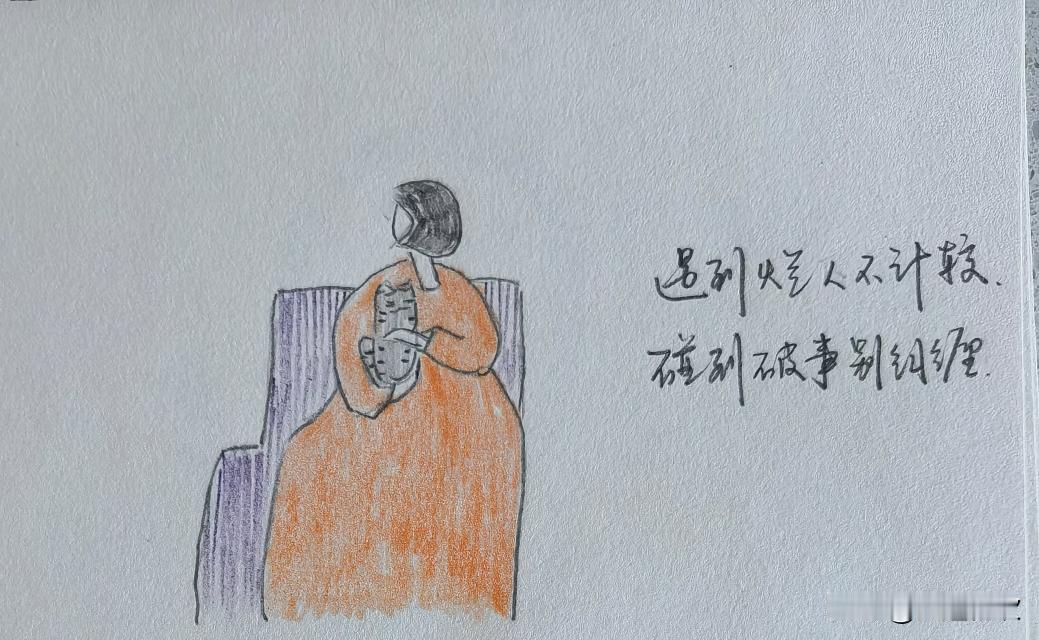 遇到烂人不计较.
碰到破事别纠缠.